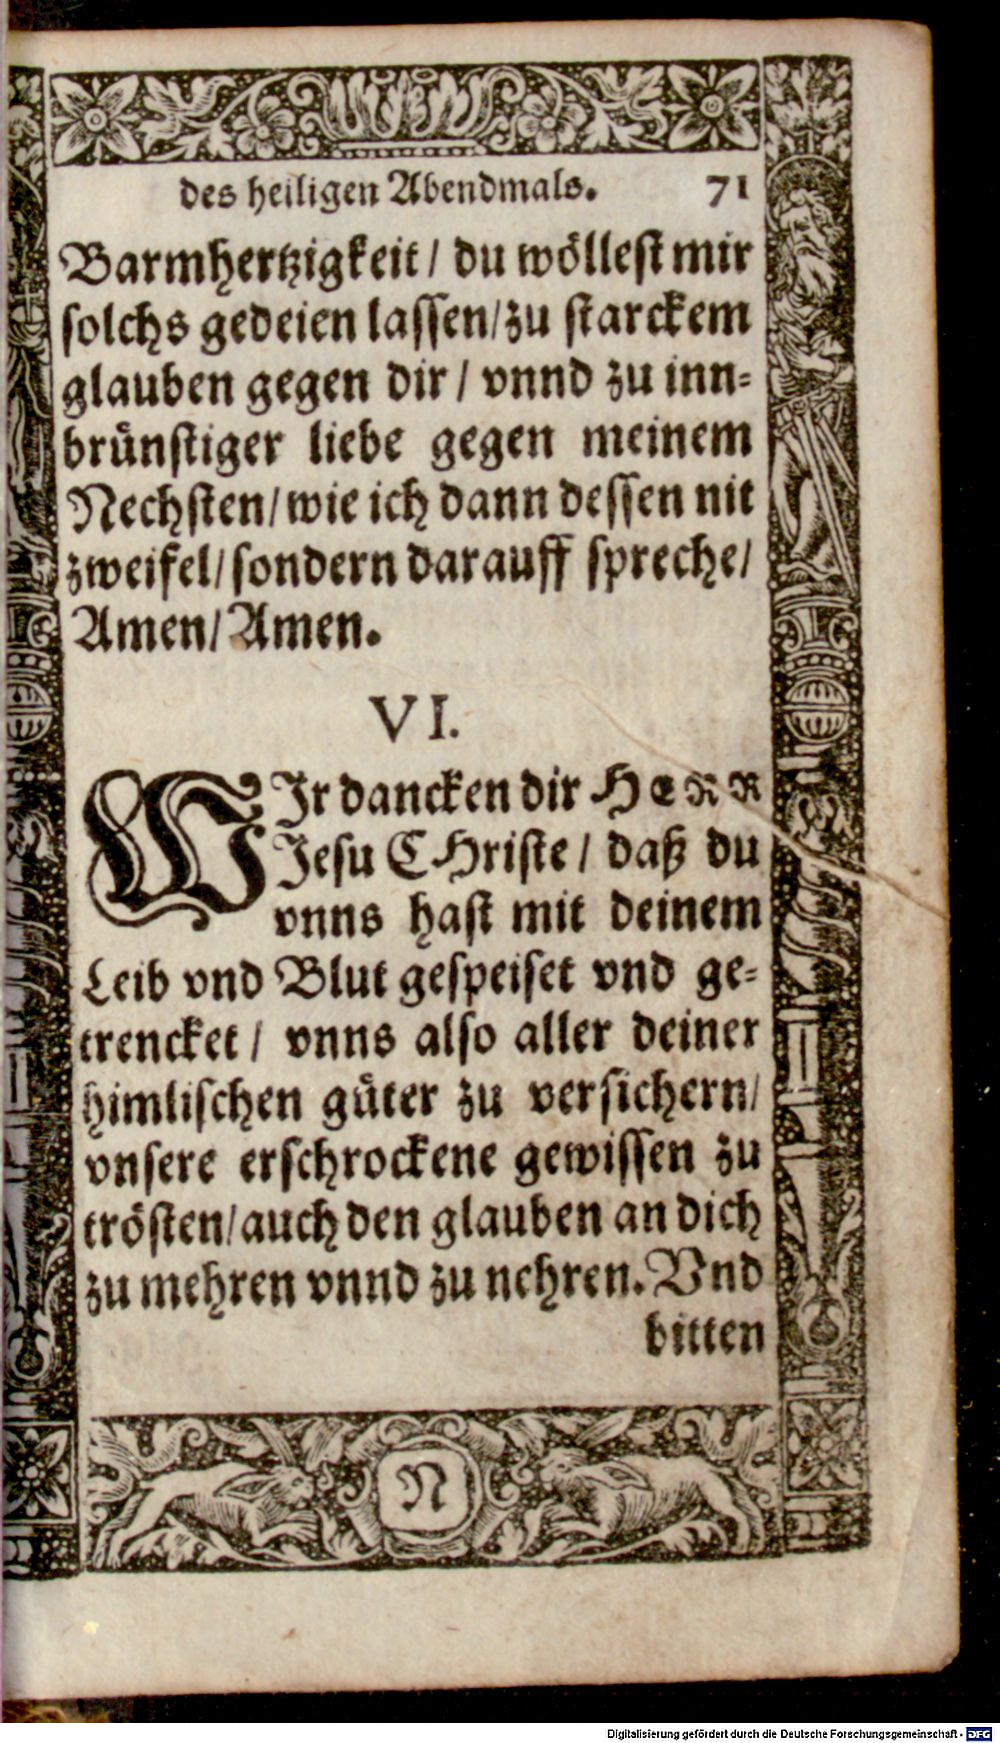 des heiligen Abendmals. 71
Barmhertzigkeit / du wöllest mir
solchs gedeien lassen/zu starckem
glauben gegen dir / vnnd zu inn-
brünstiger liebe gegen meinem
Nechsten/wie ich dann dessen nit
zweifel/sondern darauff spreche/
Amen/Amen.
VI.
WIr dancken dir HERR
Jesu CHriste / daß du
vnns hast mit deinem
Leib vnd Blut gespeiset vnd ge-
trencket / vnns also aller deiner
himlischen güter zu versichern/
vnsere erschrockene gewissen zu
trösten/auch den glauben an dich
zu mehren vnnd zu nehren. Vnd
bitten
N
Digitalisierung gefördert durch die Deutsche Forschungsgemeinschaft - DFG